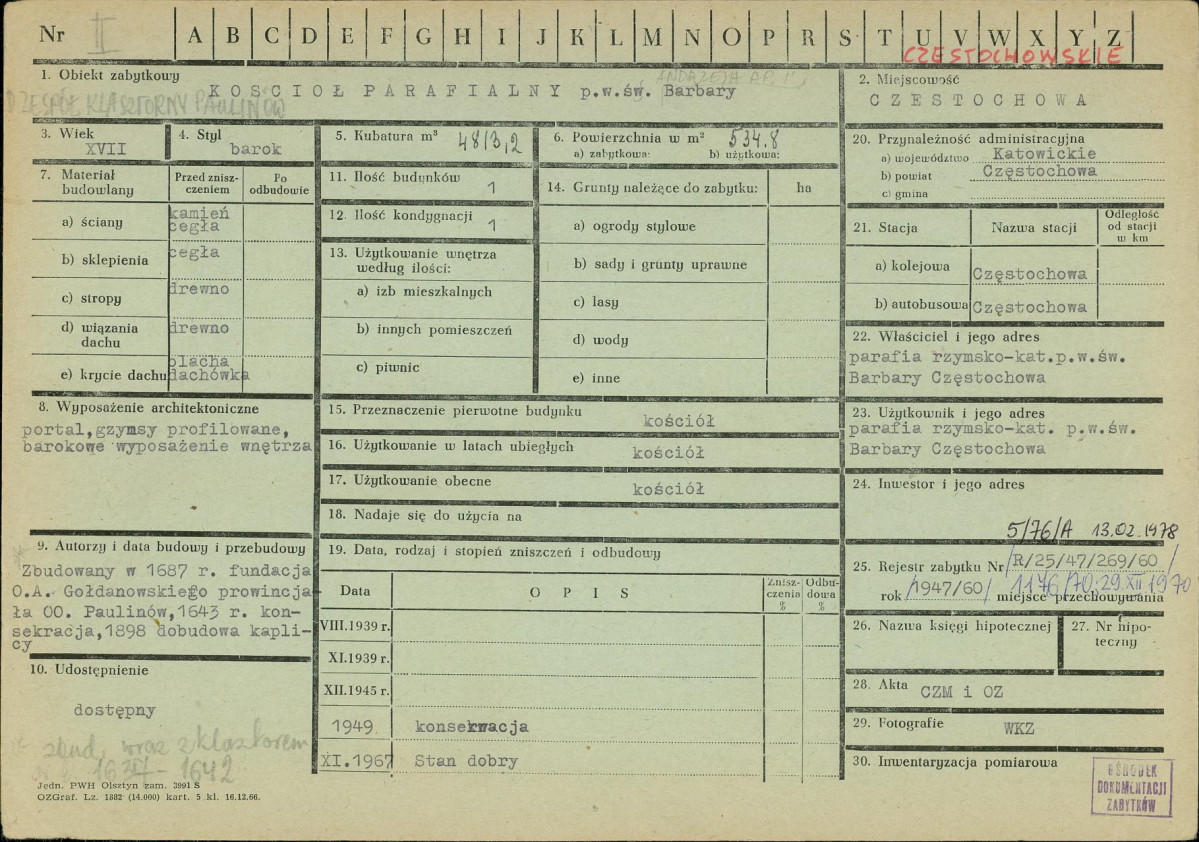 Nr II A B C D E F G H I J K L M N O P R S T U V W X Y Z
CZĘSTOCHOWSKIE
1. Obiekt zabytkowy
ANDRZEJA AP. i
KOŚCIOŁ PARAFIALNY p.w.św. Barbary
ZESPÓŁ KLASZTORNY PAULINÓW
2. Miejscowość
CZESTOCHOWA
3. Wiek
XVII
4. Styl
barok
5. Kubatura m³ 4813,2
6. Powierzchnia w m² 534.8
a) zabytkowa: b) użytkowa:
7. Materiał budowlany
Przed znisz-
czeniem
Po
odbudowie
a) ściany
kamień
cegła
b) sklepienia cegła
c) stropy drewno
d) wiązania
dachu
drewno
e) krycie dachu
blacha
dachówka
8. Wyposażenie architektoniczne
portal,gzymsy profilowane,
barokowe wyposażenie wnętrza
9. Autorzy i data budowy i przebudowy
Zbudowany w 1687 r. fundacja
O.A. Gołdanowskiego prowincja
ła OO. Paulinów,1643 r. kon-
sekracja,1898 dobudowa kapli-
cy
10. Udostępnienie
dostępny
zbud. wraz z klasztorem
1637 - 1642
Jedn. PWH Olsztyn zam. 3991 S
OZGraf. Lz. 1882 (14.000) kart. 5 kl. 16.12.66.
11. Ilość budynków
1
12. Ilość kondygnacji
1
13. Użytkowanie wnętrza
według ilości:
a) izb mieszkalnych
b) innych pomieszczeń
c) piwnic
14. Grunty należące do zabytku: ha
a) ogrody stylowe
b) sady i grunty uprawne
c) lasy
d) wody
e) inne
15. Przeznaczenie pierwotne budynku
kościół
16. Użytkowanie w latach ubiegłych
kościół
17. Użytkowanie obecne
kościół
18. Nadaje się do użycia na
19. Data, rodzaj i stopień zniszczeń i odbudowy
Data OPIS
Znisz-
czenia
%
Odbu-
dowa
%
VIII.1939 r.
XI.1939 r.
XII.1945 r.
1949 konserwacja
XI.1967 Stan dobry
20. Przynależność administracyjna
a) województwo Katowickie
b) powiat Częstochowa
c) gmina
21. Stacja Nazwa stacji
Odległość
od stacji
w km
a) kolejowa Częstochowa
b) autobusowa Częstochowa
22. Właściciel i jego adres
parafia rzymsko-kat.p.w.św.
Barbary Częstochowa
23. Użytkownik i jego adres
parafia rzymsko-kat. p.w.św.
Barbary Częstochowa
24. Inwestor i jego adres
5/76/A 13.02.1978
25. Rejestr zabytku Nr /R/25/47/269/60/
rok /1947/60/ miejsce przechowywania
1176/70;29.XII 1970
26. Nazwa księgi hipotecznej
27. Nr hipo-
teczny
28. Akta CZM i OZ
29. Fotografie WKZ
30. Inwentaryzacja pomiarowa
OŚRODEK
DOKUMENTACJI
ZABYTKÓW